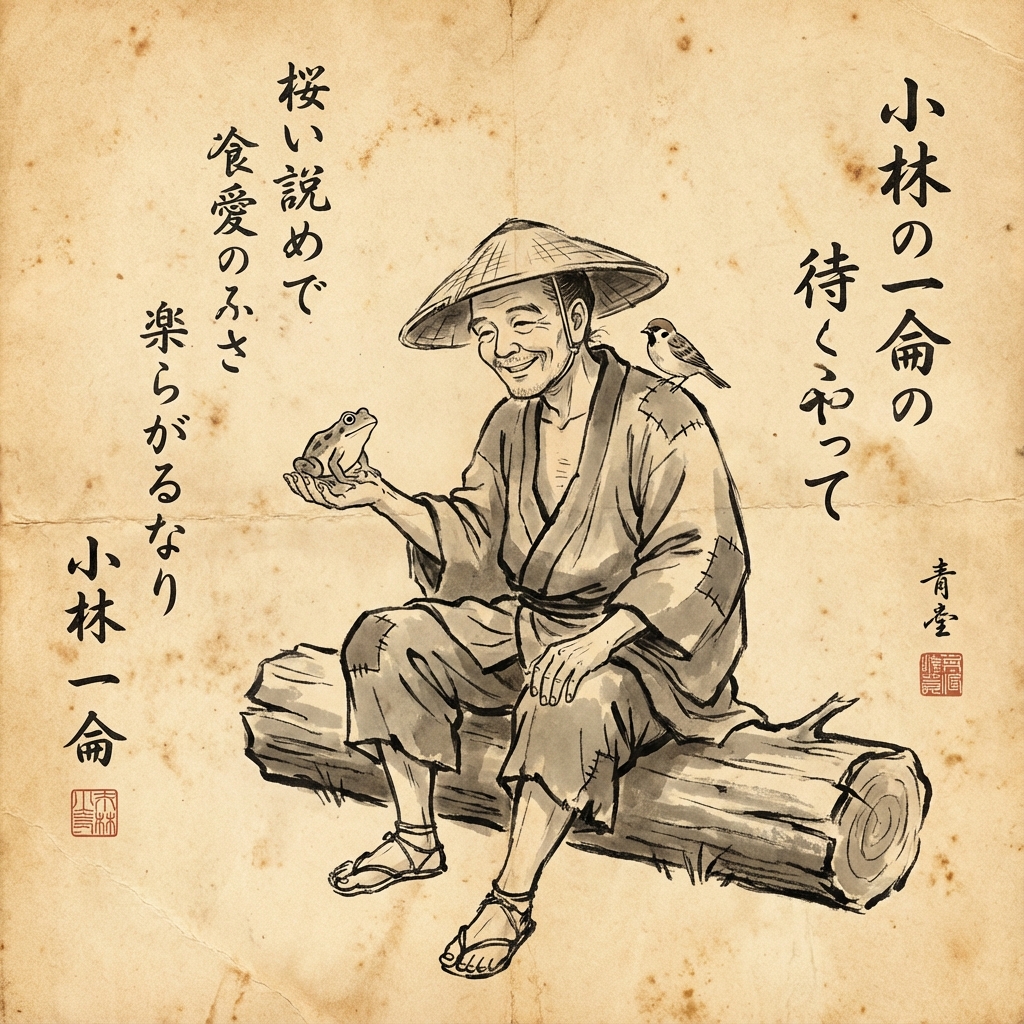 小林の一侖の
待くやって
青堂
桜い説めで
食愛のふさ
楽らがるなり
小林一侖